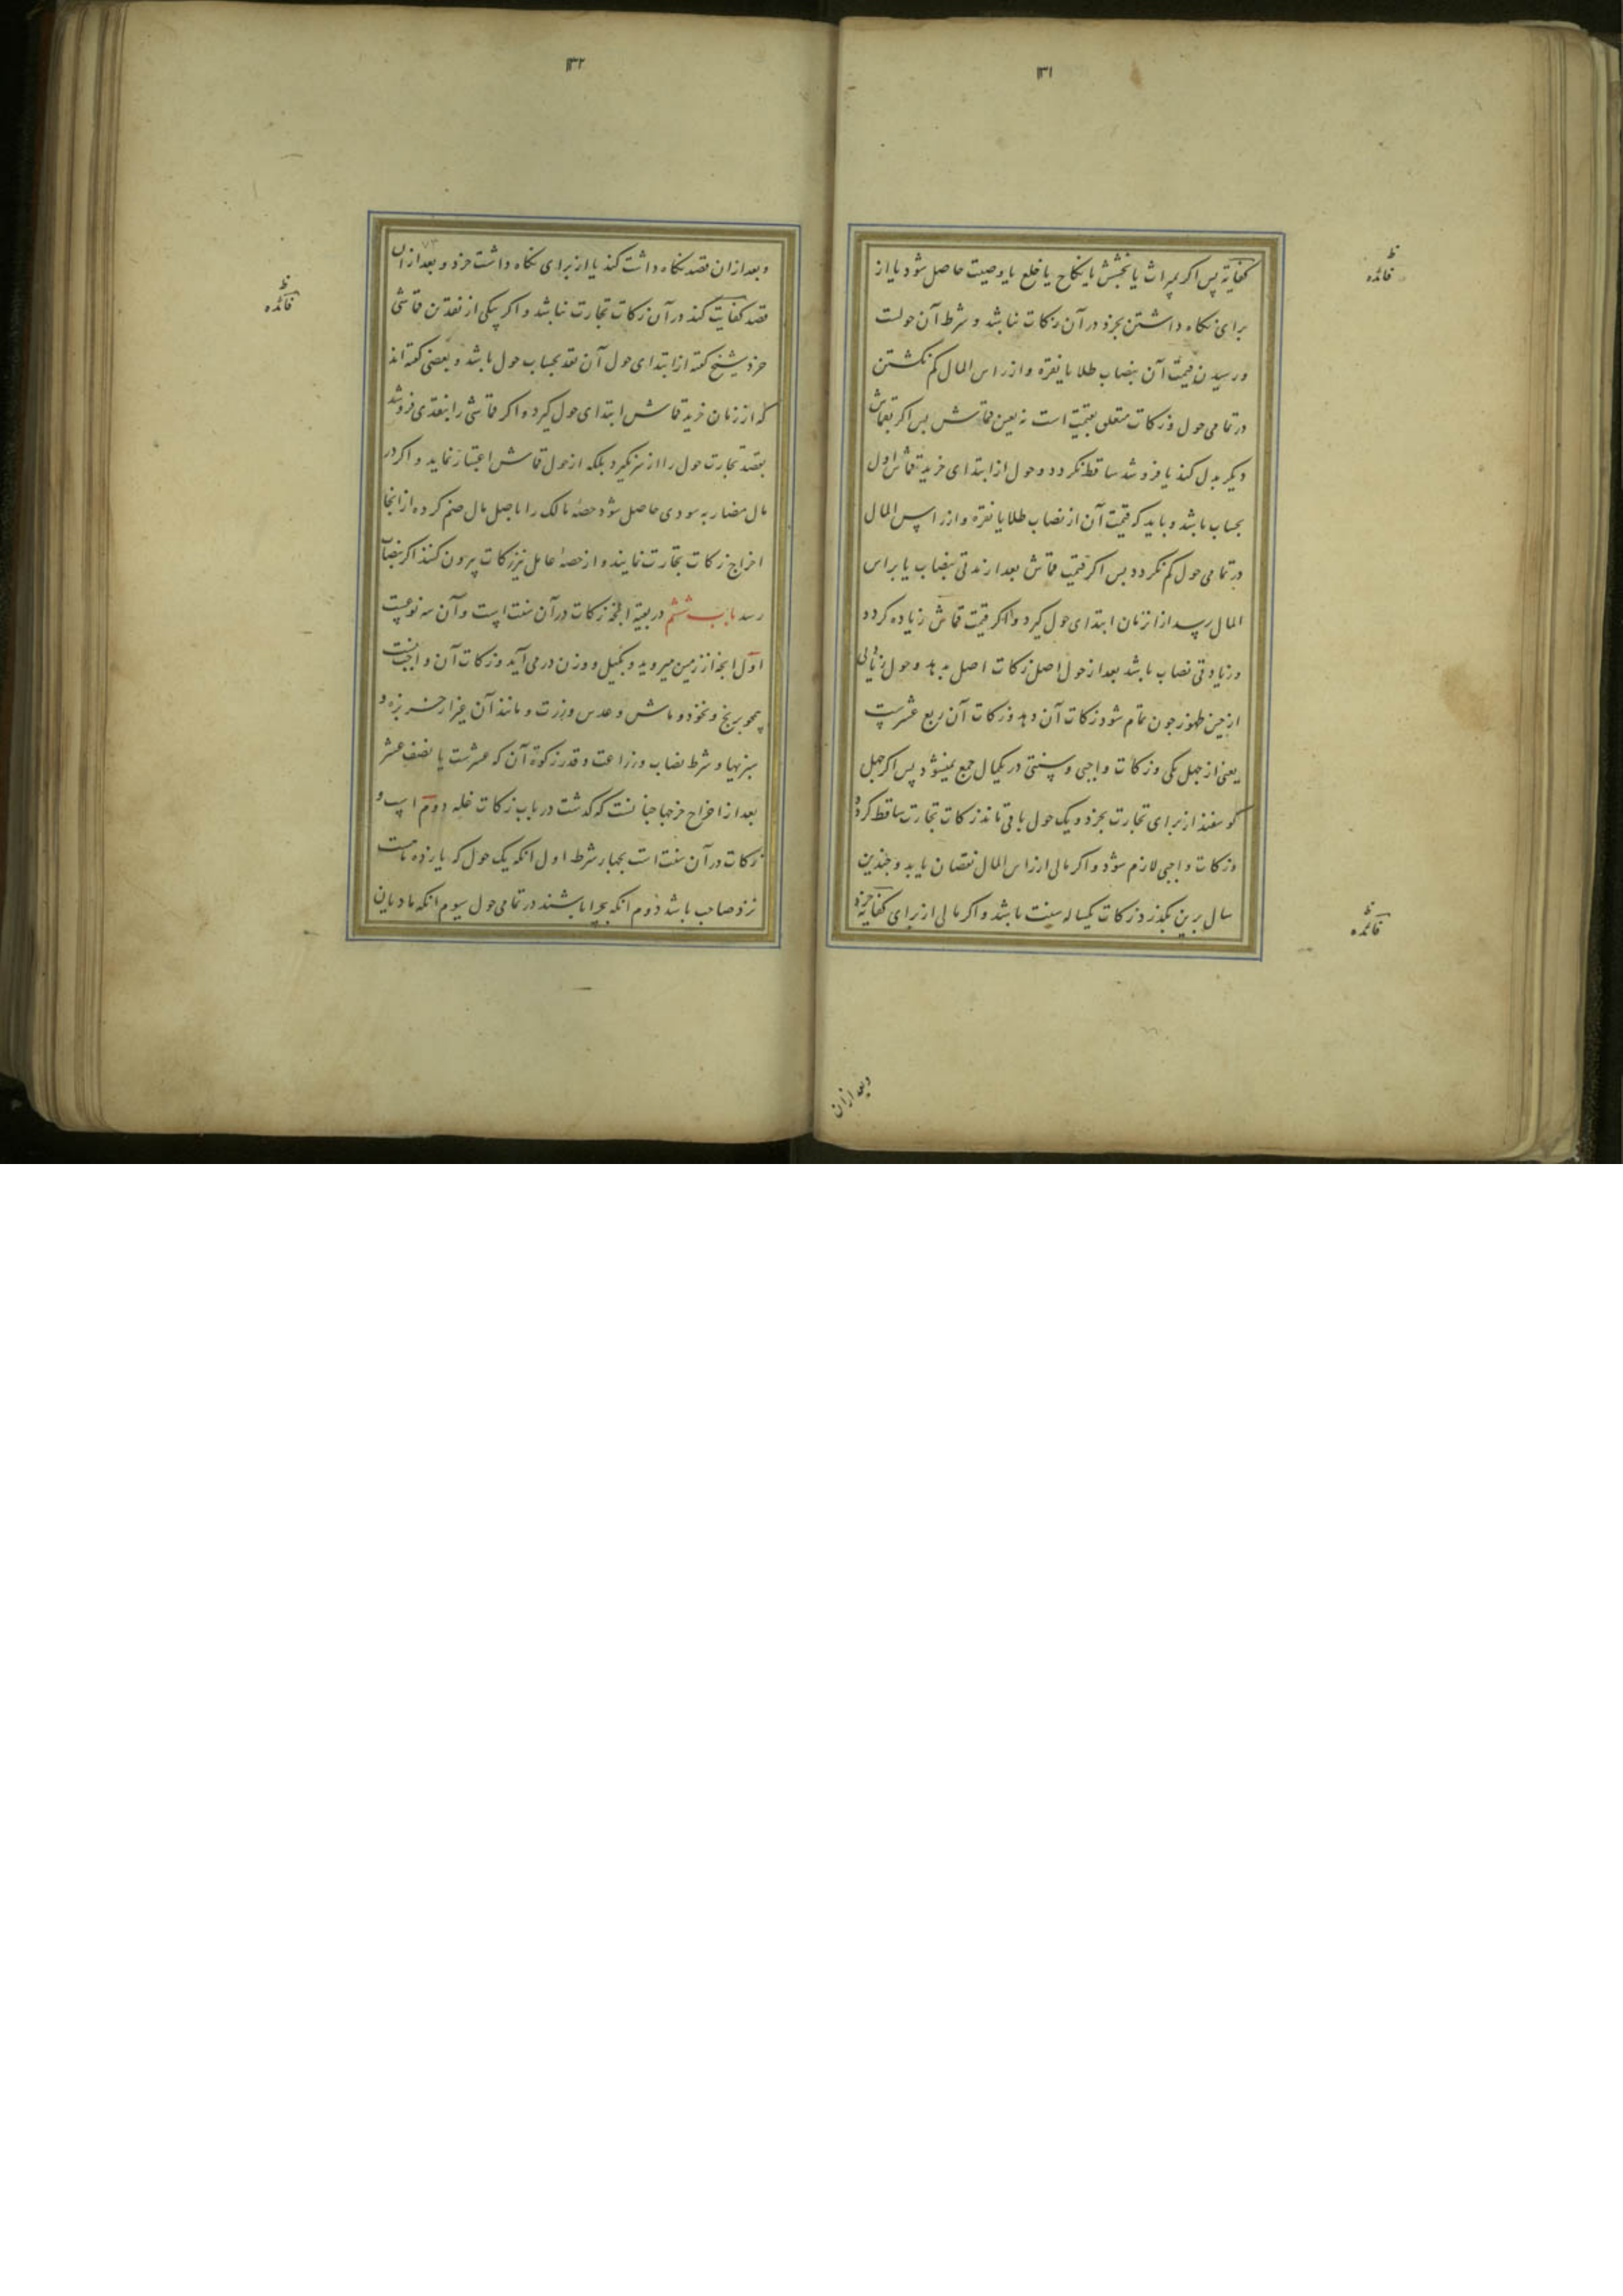 ١٣١
کفایة پس اکر بمیراث یا بخشش یا نکاح یا خلع یا وصیت حاصل شود یا از
برای نکاه داشتن بخرد در آن زکات نباشد و شرط آن حولست
و رسیدن قیمت آن بنصاب طلا یا نقره و از راس المال کم نکشتن
در تمامی حول و زکات متعلق بقیمت است نه بعین قماش پس اکر بقماش
دیکر بدل کند یا فروشد ساقط نکردد و حول از ابتدای خرید قماش اول
بحساب باشد و باید که قیمت آن از نصاب طلا یا نقره و از راس المال
در تمامی حول کم نکردد پس اکر قیمت قماش بعد از مدتی بنصاب یا براس
المال رسد از آن زمان ابتدای حول کیرد و اکر قیمت قماش زیاده کردد
و زیادتی نصاب باشد بعد از حول اصل زکات اصل بدهد و حول زیادتی
از حین ظهور چون تمام شود زکات آن دهد و زکات آن ربع عشرست
یعنی از چهل یکی و زکات واجبی و سنتی در یکمال جمع نمیشود پس اکر چهل
کوسفند از برای تجارت بخرد و یک حول باقی ماند زکات تجارت ساقط کردد
و زکات واجبی لازم شود و اکر مالی از راس المال نقصان یابد و چندین
سال برین بکذرد زکات یکساله سنت باشد و اکر مالی از برای کفایة خرد
فائده
فائده
وبعد ازان
١٣٢
٧٣
و بعد ازان قصد نکاه داشت کند یا از برای نکاه داشت خرد و بعد ازان
قصد کفایت کند در آن زکات تجارت نباشد و اکر بیکی از نقدین قماشی
خرد شیخ کفته از ابتدای حول آن نقد بحساب حول باشد و بعضی کفته اند
که از زمان خرید قماش ابتدای حول کیرد و اکر قماشی را بنقدی فروشد
بقصد تجارت حول را از سر نکیرد بلکه از حول قماش اعتبار نماید و اکر در
مال مضاربه سودی حاصل شود حصهٔ مالک را با اصل مال ضم کرده از انجا
اخراج زکات تجارت نمایند و از حصهٔ عامل نیز زکات بیرون کنند اکر بنصاب
رسد باب ششم در بقیه انچه زکات در آن سنت است و آن سه نوعست
اول انچه از زمین میروید و بکیل و وزن در می آید و زکات آن واجب نیست
همچو برنج و نخود و ماش و عدس و ذرت و مانند آن غیر از خربزه و
سبزیها و شرط نصاب و زراعت و قدر زکوة آن که عشرست یا نصف عشر
بعد از اخراج خرجها چنانست که کذشت در باب زکات غله دوم اسب و
زکات در آن سنت است بچهار شرط اول انکه یک حول که یازده ماهست
نزد صاحب باشد دوم انکه بچرا باشند در تمامی حول سیوم انکه مادیان
فائده